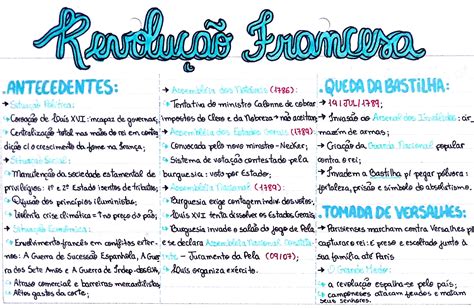 Revolução Francesa
.ANTECEDENTES:
→ Situação Política:
• Coroação de Luís XVI: incapaz de governar;
• Centralização total nas mãos do rei em contradição c/ o crescimento da fome na França;
→ Situação Social:
• Manutenção da sociedade estamental de
privilégios: 1º e 2º Estado isentos de tributos;
• Difusão dos princípios iluministas;
• Violenta crise climática = ↑ no preço do pão;
→ Situação Econômica:
• Envolvimento francês em conflitos externos: A Guerra de Sucessão Espanhola, A Guerra
dos Sete Anos e A Guerra de Indep. dos EUA;
• Atraso colonial e barreiras mercantilistas;
• Altos gastos da corte;
→ Assembleia dos Notáveis (1786):
• Tentativa do ministro Calonne de cobrar
impostos do Clero e da Nobreza → não aceitam;
→ Assembleia dos Estados Gerais (1789):
• Convocada pelo novo ministro - Necker;
• Sistema de votação contestado pela
burguesia: voto por Estado;
→ Assembleia Nacional (1789):
• Burguesia exige contagem indiv. dos votos;
• Luís XVI tenta dissolver os Estados Gerais;
• Burguesia invade a salão do jogo de Pela
e se declara Assembleia Nacional Constituinte - Juramento da Pela (09/07);
• Luís organiza exército.
.QUEDA DA BASTILHA:
→ 14/JUL/1789;
→ Invasão ao Arsenal dos Inválidos: armazém de armas;
→ Criação da Guarda Nacional popular
contra o rei;
→ Invadem a Bastilha p/ pegar pólvora:
fortaleza, prisão e símbolo do absolutismo.
.TOMADA DE VERSALHES:
→ Parisienses marcham contra Versalhes p/
capturar o rei: é preso e escoltado junto à
sua família até Paris
→ O Grande Medo:
• a revolução espalha-se pelo país;
• camponeses atacam feudos e matam
seus senhores.